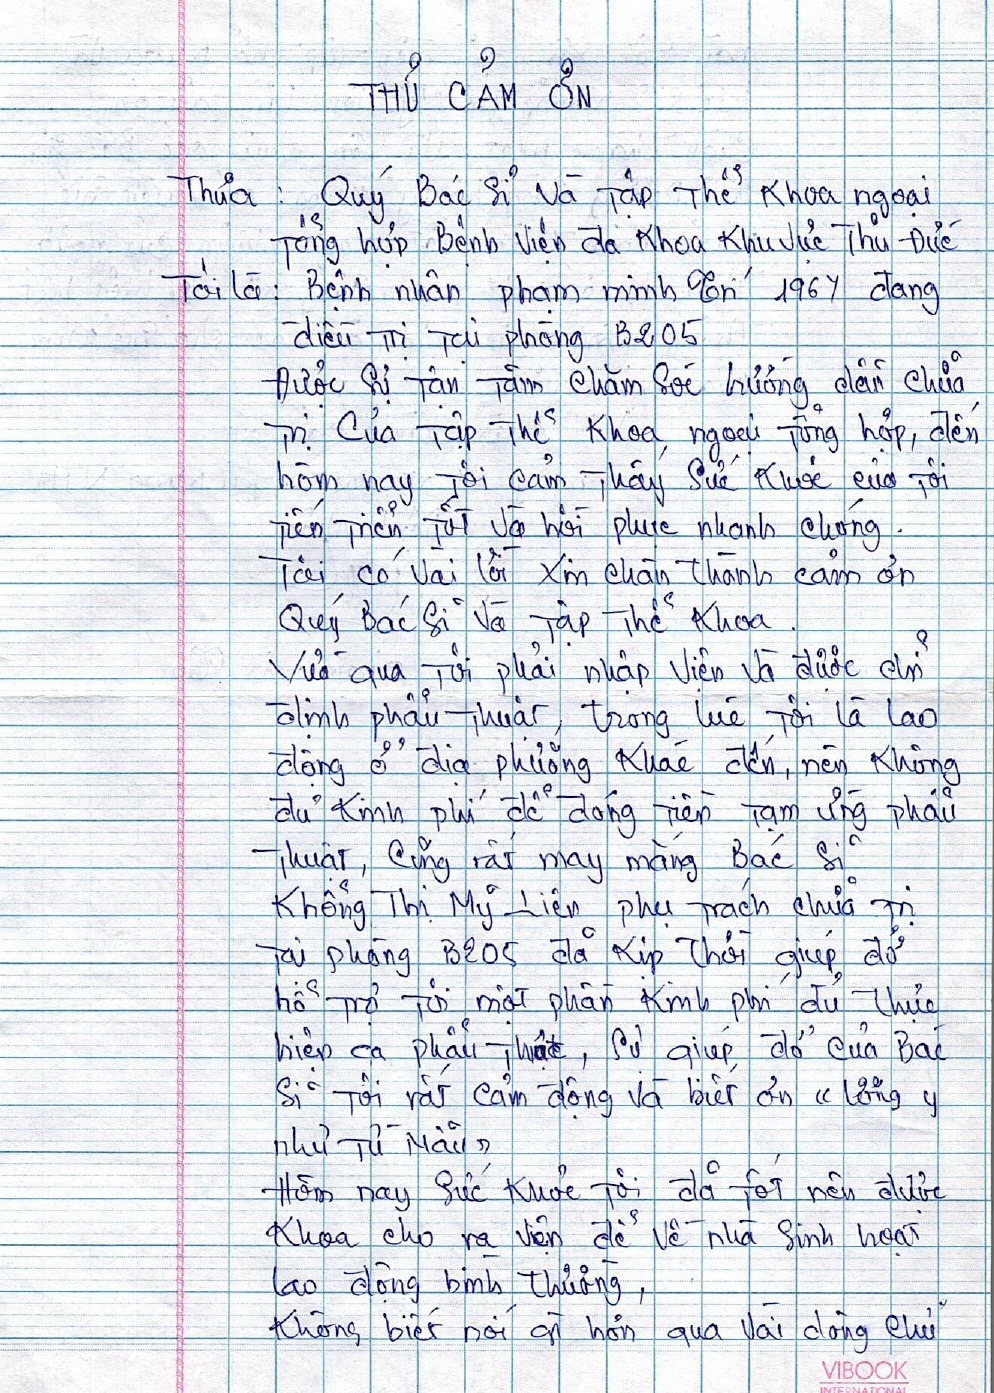 THƯ CẢM ƠN
Thưa : Quý Bác Sĩ Và Tập Thể Khoa ngoại
Tổng hợp Bệnh Viện đa Khoa Khu Vực Thủ Đức
Tôi là : Bệnh nhân phạm minh 1967 đang
điều Trị Tại phòng B205
Được Sự Tận Tâm Chăm Sóc hướng dẫn Chữa
Trị Của Tập Thể Khoa ngoại Tổng hợp, đến
hôm nay Tôi Cảm Thấy Sức Khỏe của Tôi
Tiến Triển Tốt Và hồi phục nhanh chóng.
Tôi có Vài lời Xin chân Thành cảm ơn
Quý Bác Sĩ Và Tập Thể Khoa.
Vừa qua Tôi phải nhập Viện Và được chỉ
định phẩu Thuật, trong lúc Tôi là lao
động ở địa phương Khác đến, nên Không
đủ Kinh phí để đóng Tiền Tạm ứng phẩu
Thuật, Cũng rất may mắng Bác Sĩ
Khổng Thị Mỹ Liên phụ Trách chữa Trị
Tại phòng B205 đã Kịp Thời giúp đở
hổ Trợ Tôi một phần Kinh phí đủ Thực
hiện ca phẩu Thuật, Sự giúp đở của Bác
Sĩ Tôi rất Cảm động Và biết ơn "lương y
như Từ Mẫu"
Hôm nay Sức Khỏe Tôi đã Tốt nên được
Khoa cho ra Viện để Về nhà Sinh hoạt
lao động bình Thường,
Không biết nói gì hơn qua Vài dòng Chữ
VIBOOK
INTERNATIONAL